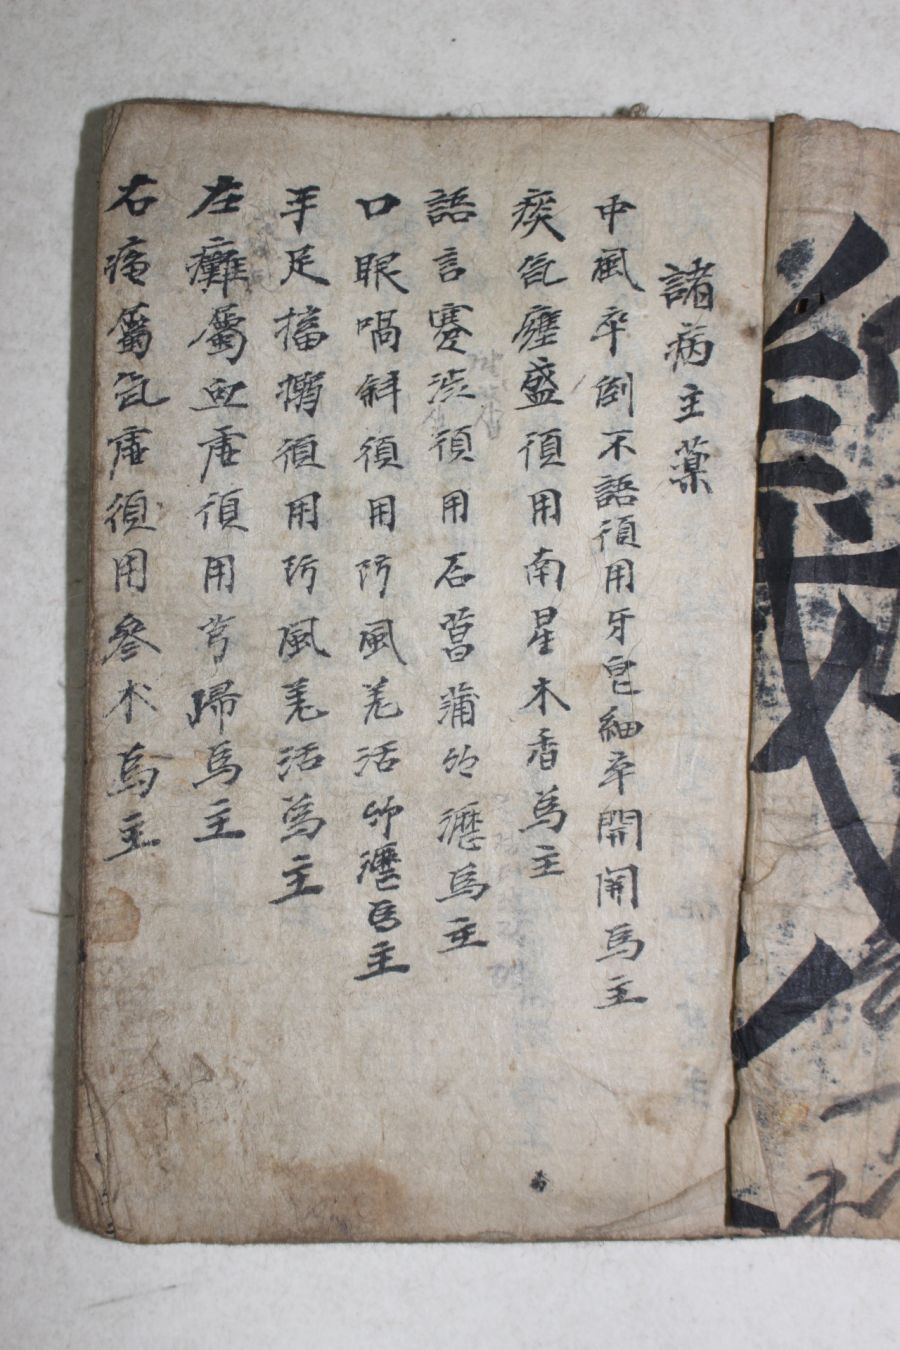 諸病主藥
中風卒倒不語須用牙皂細辛開関為主
痰氣壅盛須用南星木香為主
語言蹇澁須用石菖蒲竹瀝為主
口眼喎斜須用防風羌活竹瀝為主
手足搐搦須用防風羌活為主
左癱屬血虛須用芎歸為主
右痪屬氣虛須用參朮為主